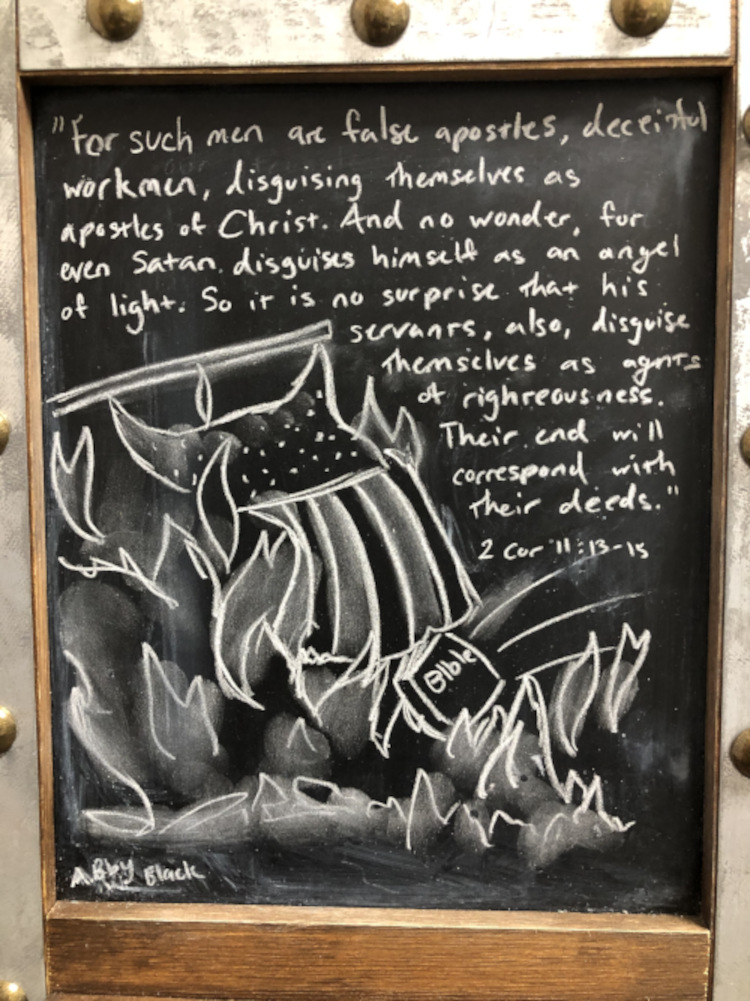 "For such men are false apostles, deceitful
workmen, disguising themselves as
apostles of Christ. And no wonder, for
even Satan disguises himself as an angel
of light. So it is no surprise that his
servants, also, disguise
themselves as agnts
of righreousness.
Their end will
correspond with
their deeds."
2 Cor 11:13-15
Bible
Abby Black